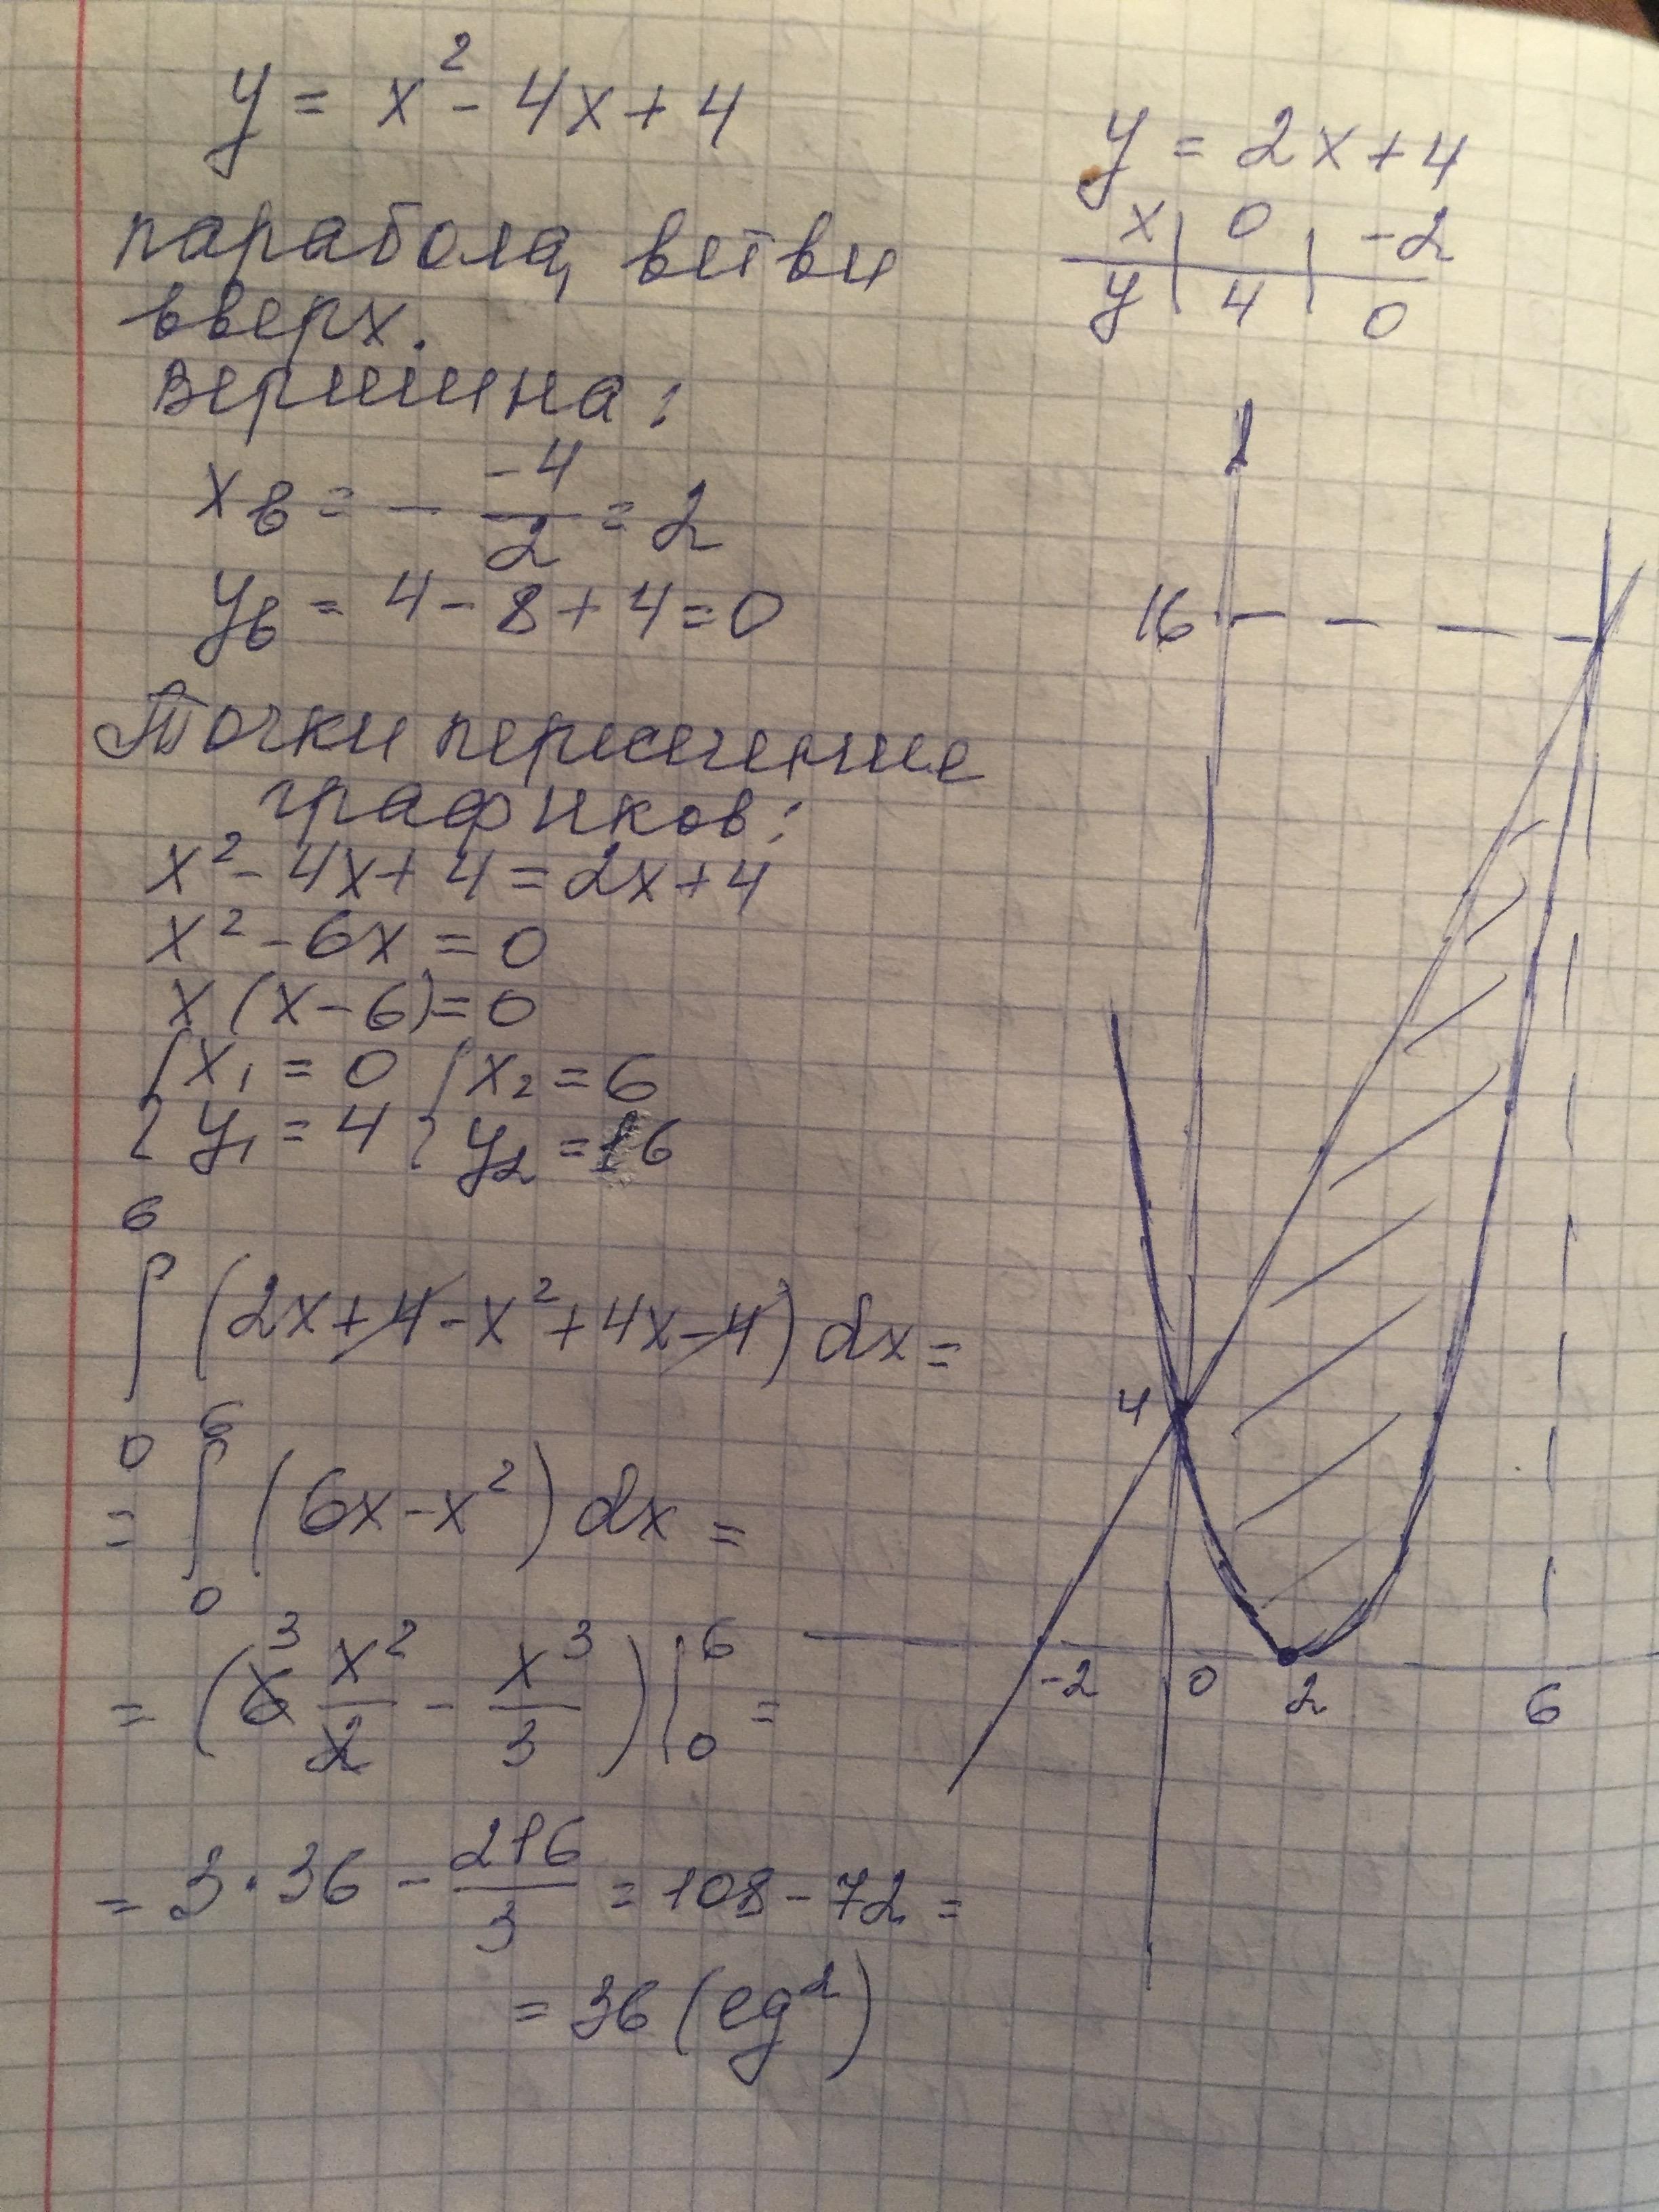 y = x² - 4x + 4
парабола, ветви
вверх.
Вершина:
xв = - -4/2 = 2
yв = 4 - 8 + 4 = 0
Точки пересечение
графиков:
x² - 4x + 4 = 2x + 4
x² - 6x = 0
x(x-6) = 0
{x₁ = 0 {x₂ = 6
{y₁ = 4 {y₂ = 16
6
∫ (2x + 4 - x² + 4x - 4) dx =
0
6
= ∫ (6x - x²) dx =
0
= (6 3 x²/2 - x³/3) |₀⁶ =
= 3·36 - 216/3 = 108 - 72 =
= 36 (ед²)
y = 2x + 4
x | 0 | -2
y | 4 | 0
16
4
-2 0 2 6